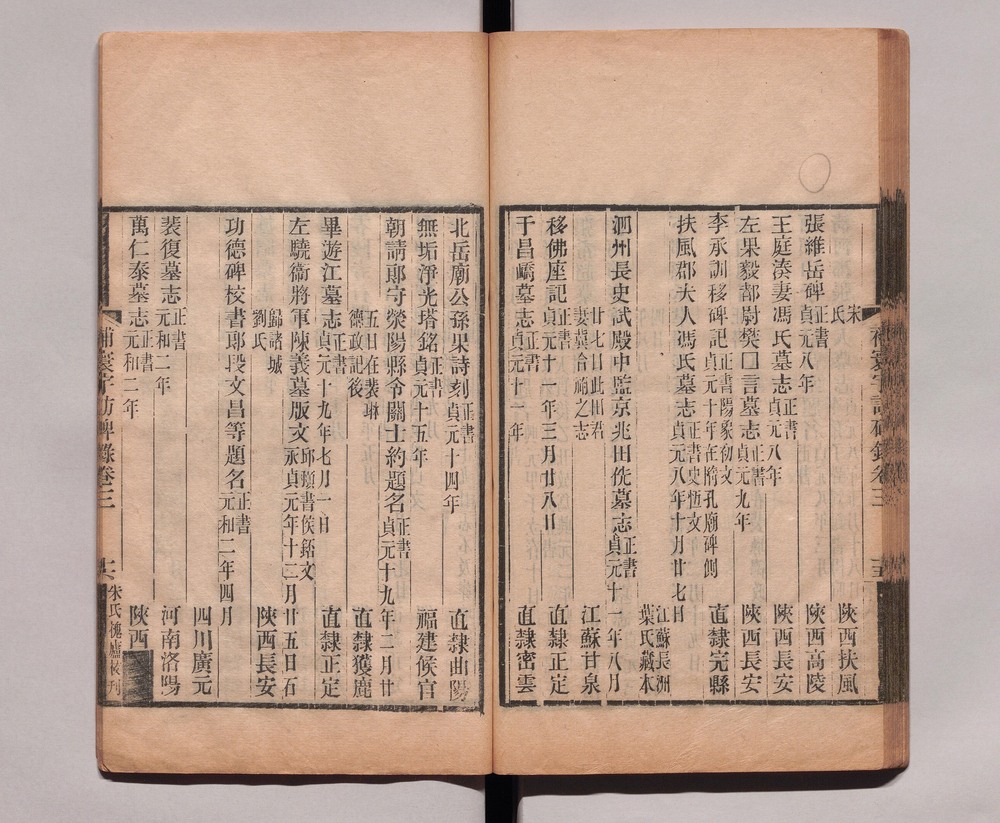 宋氏
陝西扶風
張維岳碑正書貞元八年
陝西高陵
王庭湊妻馮氏墓志正書貞元八年
陝西長安
左果毅都尉樊囗言墓志正書貞元九年
陝西長安
李承訓移碑記正書陽彖初文貞元十年在附孔廟碑側
直隸完縣
扶風郡夫人馮氏墓志正書史恆文貞元八年十月廿七日
江蘇長洲葉氏藏本
泗州長史試殿中監京兆田侁墓志正書貞元十一年八月
廿七日此田君妻冀合祔之志
江蘇甘泉
移佛座記正書貞元十一年三月廿八日
直隸正定
于昌嶠墓志正書貞元十一年
直隸密雲
北岳廟公孫杲詩刻正書貞元十四年
直隸曲陽
無垢淨光塔銘正書貞元十五年
福建候官
朝請郎守滎陽縣令關士約題名正書貞元十九年二月廿
五日在裴琳德政記後
直隸獲鹿
畢遊江墓志正書貞元十九年七月一日
直隸正定
左驍衞將軍陳義墓版文邱頴書侯銛文永貞元年十二月廿五日石
歸諸城劉氏
陝西長安
功德碑校書郎段文昌等題名正書元和二年四月
四川廣元
裴復墓志正書元和二年
河南洛陽
萬仁泰墓志正書元和二年
陝西
補寰宇訪碑錄卷三
朱氏槐廬校刊